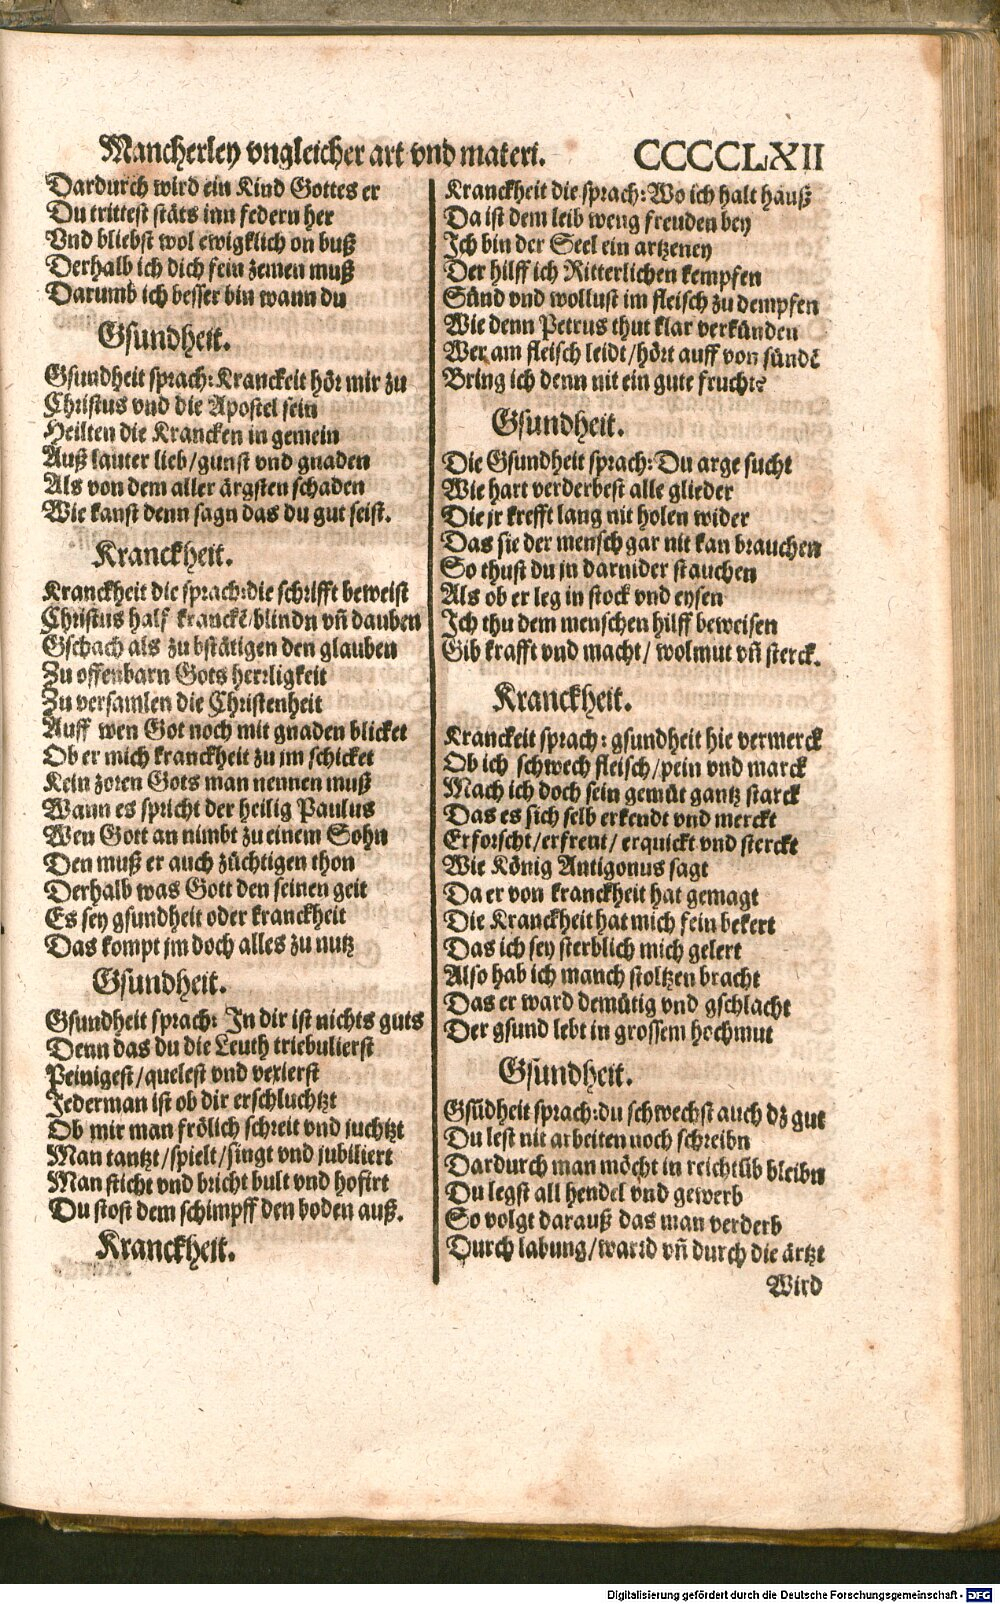 Mancherley vngleicher art vnd materi. CCCCCLXII
Dardurch wird ein Kind Gottes er
Du trittest stäts inn federn her
Vnd bliebst wol ewigklich on buß
Derhalb ich dich fein zemen muß
Darumb ich besser bin wann du
Gsundheit.
Gsundheit sprach: Kranckeit hör mir zu
Christus vnd die Apostel sein
Heilten die Krancken in gemein
Auß lauter lieb/gunst vnd gnaden
Als von dem aller ärgsten schaden
Wie kanst denn sagn das du gut seist.
Kranckheit.
Kranckheit die sprach: die schrifft beweist
Christus half kranckē/blindn vñ dauben
Gschach als zu bstätigen den glauben
Zu offenbarn Gots herrligkeit
Zu versamlen die Christenheit
Auff wen Got noch mit gnaden blicket
Ob er mich kranckheit zu im schicket
Kein zoren Gots man nennen muß
Wann es spricht der heilig Paulus
Wen Gott an nimbt zu einem Sohn
Den muß er auch züchtigen thon
Derhalb was Gott den seinen geit
Es sey gsundheit oder kranckheit
Das kompt jm doch alles zu nutz
Gsundheit.
Gsundheit sprach: In dir ist nichts guts
Denn das du die Leuth triebulierst
Peinigest/quelest vnd vexierst
Jederman ist ob dir erschluchtzt
Ob mir man frölich schreit vnd juchtzt
Man tantzt/spielt/singt vnd jubiliert
Man sticht vnd bricht bult vnd hofirt
Du stost dem schimpff den boden auß.
Kranckheit.
Kranckheit die sprach: Wo ich halt hauß
Da ist dem leib weng freuden bey
Ich bin der Seel ein artzeney
Der hilff ich Ritterlichen kempfen
Sünd vnd wollust im fleisch zu dempfen
Wie denn Petrus thut klar verkünden
Wer am fleisch leidt/hört auff von sündē
Bring ich denn nit ein gute frucht?
Gsundheit.
Die Gsundheit sprach: Du arge sucht
Wie hart verderbest alle glieder
Die jr krefft lang nit holen wider
Das sie der mensch gar nit kan brauchen
So thust du jn darnider stauchen
Als ob er leg in stock vnd eysen
Ich thu dem menschen hilff beweisen
Gib krafft vnd macht/ wolmut vñ sterck.
Kranckheit.
Kranckeit sprach: gsundheit hie vermerck
Ob ich schwech fleisch/pein vnd marck
Mach ich doch sein gemüt gantz starck
Das es sich selb erkendt vnd merckt
Erforscht/erfreut/ erquickt vnd sterckt
Wie König Antigonus sagt
Da er von kranckheit hat gemagt
Die Kranckheit hat mich fein bekert
Das ich sey sterblich mich gelert
Also hab ich manch stoltzen bracht
Das er ward demütig vnd gschlacht
Der gsund lebt in grossem hochmut
Gsundheit.
Gsūdheit sprach: du schwechst auch dz gut
Du lest nit arbeiten noch schreibn
Dardurch man möcht in reichtūb bleibn
Du legst all hendel vnd gewerb
So volgt darauß das man verderb
Durch labung/wartd vñ durch die ärtzt
Wird
Digitalisierung gefördert durch die Deutsche Forschungsgemeinschaft - DFG